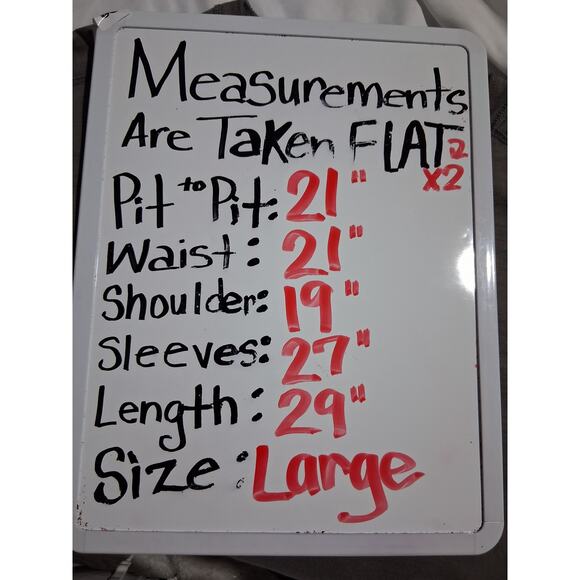 Measurements
Are Taken FLAT 2
x2
Pit to Pit: 21"
Waist: 21"
Shoulder: 19"
Sleeves: 27"
Length: 29"
Size: Large